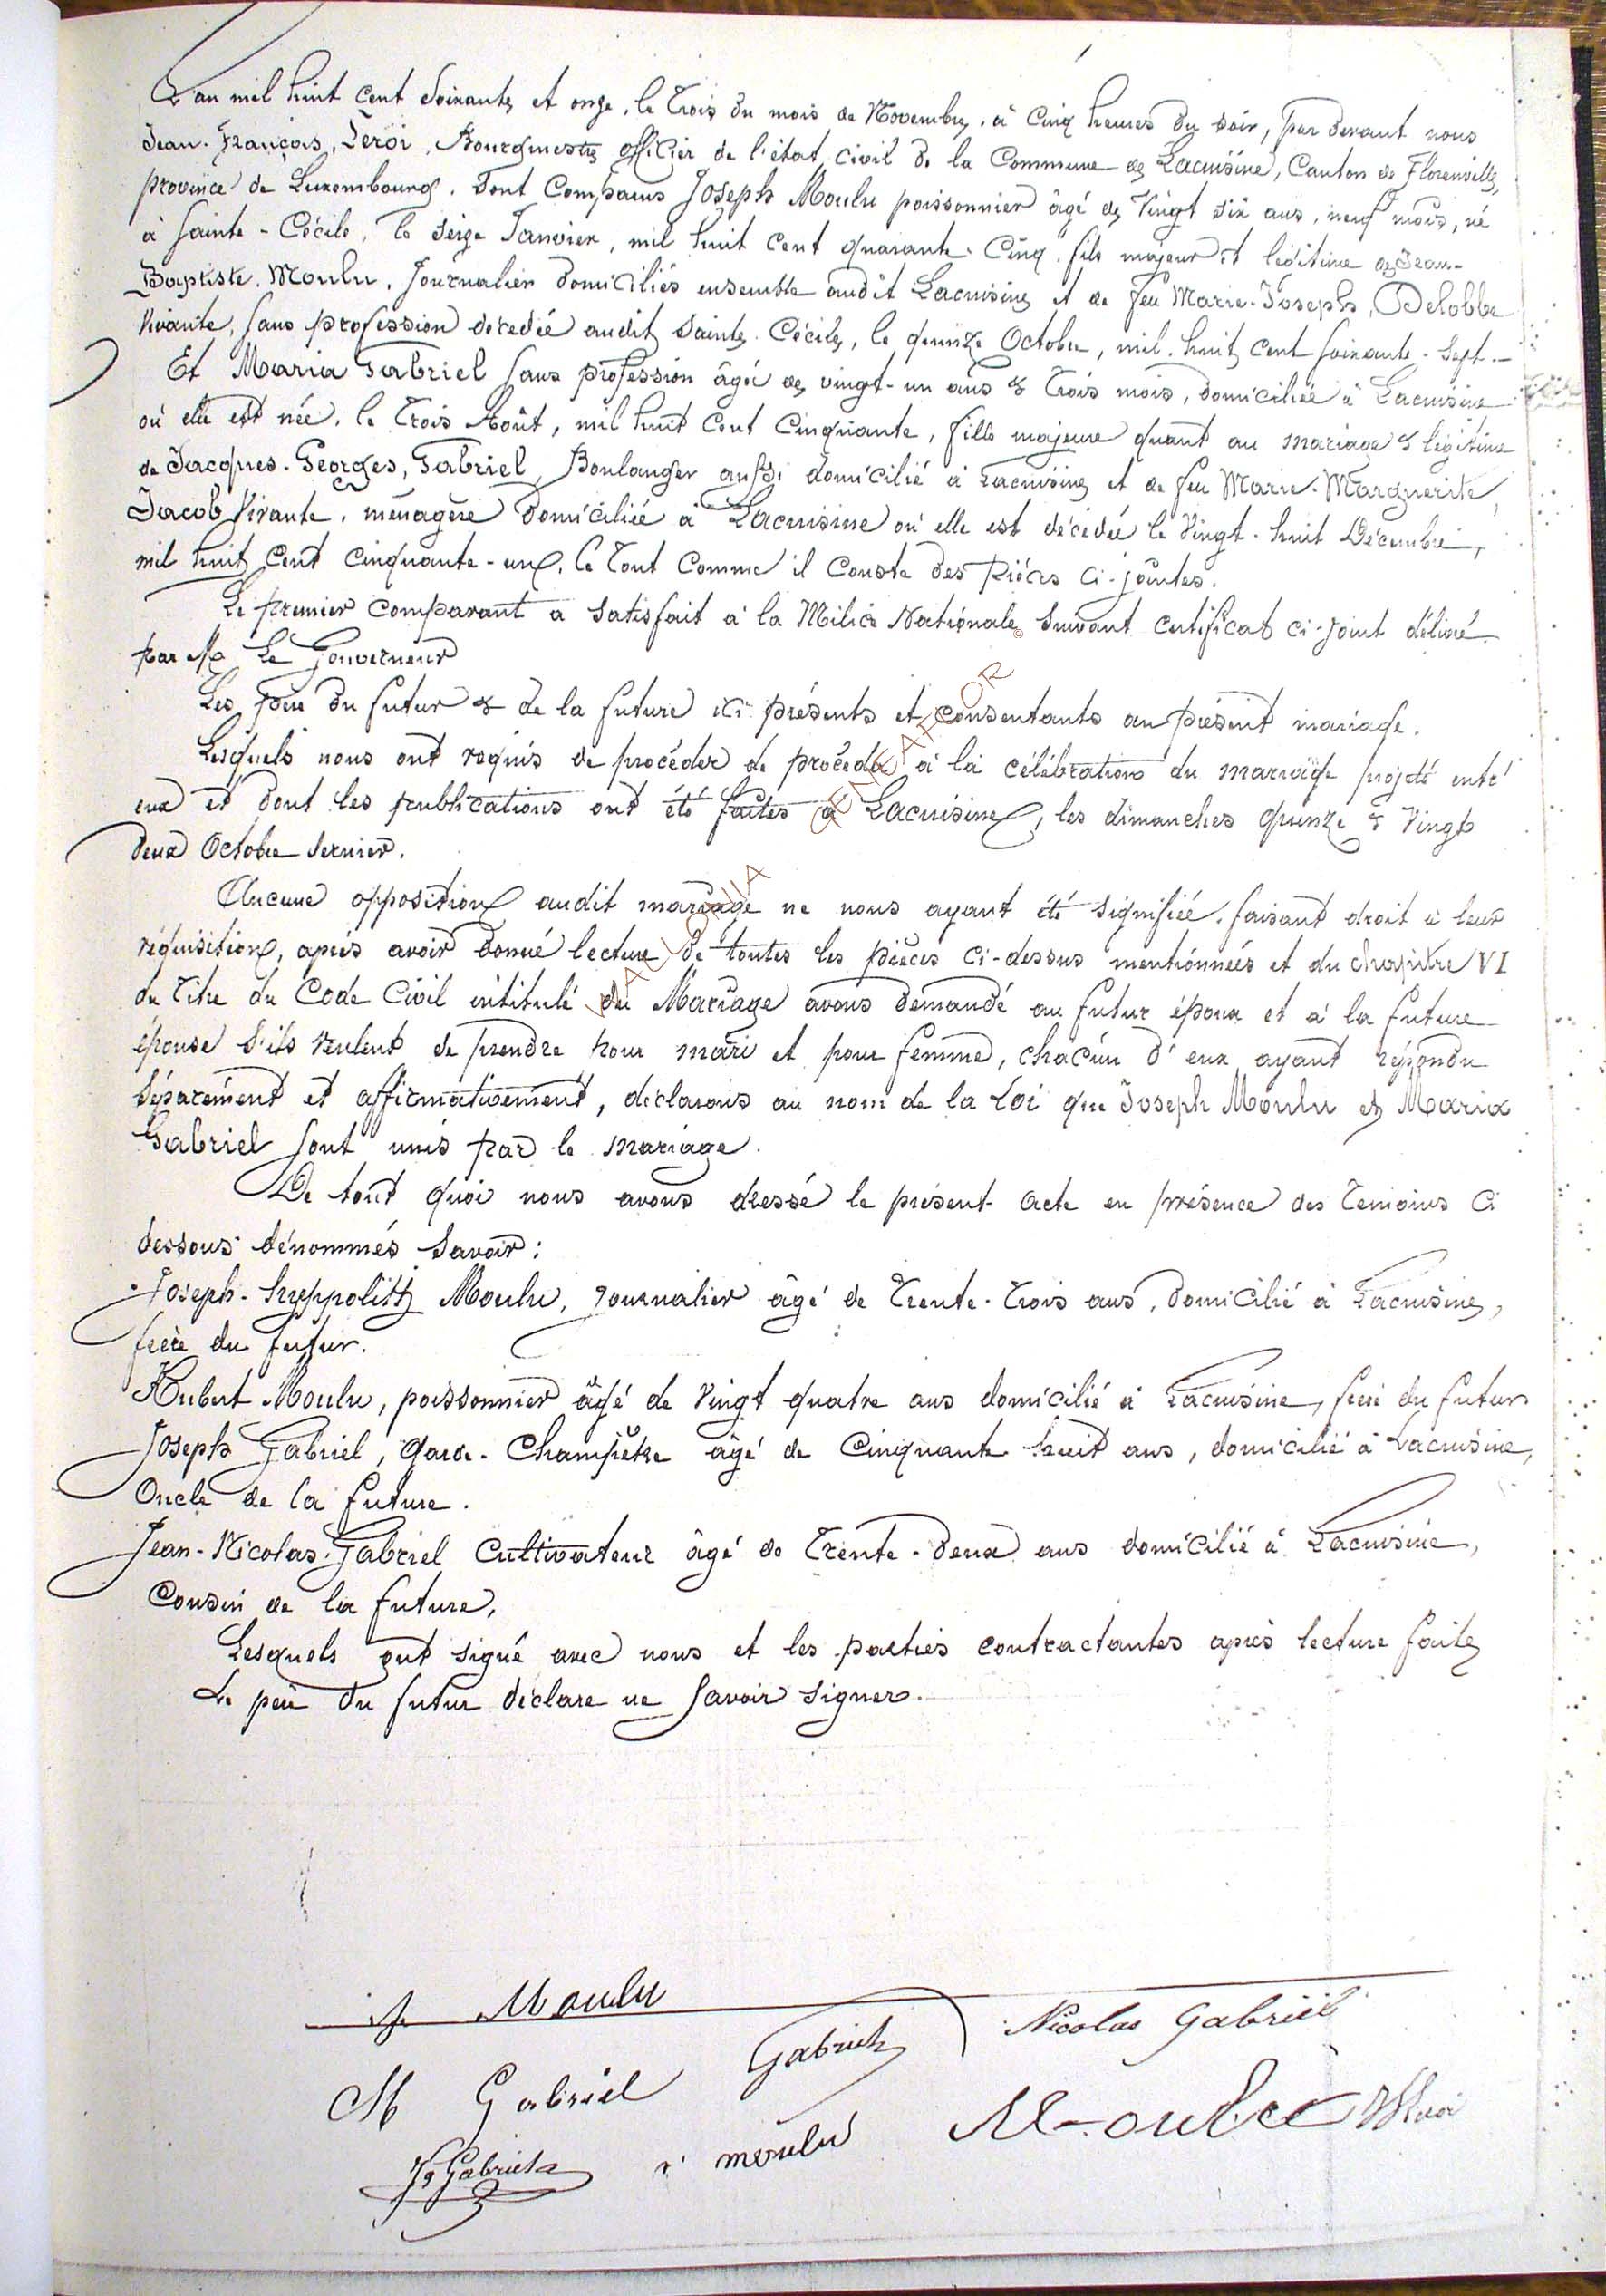 L'an mil huit cent soixante et onze, le trois du mois de Novembre, à cinq heures du soir, par devant nous
Jean-François, Leroi, Bourgmestre officier de l'état civil de la Commune de Lacuisine, Canton de Florenville,
province de Luxembourg, sont comparus Joseph Moulu poissonnier âgé de vingt six ans, neuf mois, né
à Sainte-Cécile, le seize Janvier, mil huit cent quarante-cinq, fils majeur et légitime de Jean-
Baptiste Moulu, Journalier domiciliés ensemble audit Lacuisine et de feu Marie-Joseph, Delobbe
vivante, sans profession décédée audit Sainte-Cécile, le quinze Octobre, mil huit cent soixante-sept.
Et Maria Gabriel sans profession âgée de vingt-un ans & trois mois, domiciliée à Lacuisine
où elle est née, le trois Août, mil huit cent cinquante, fille majeure quant au mariage & légitime
de Jacques-Georges, Gabriel, Boulanger aussi domicilié à Lacuisine et de feu Marie-Marguerite,
Jacob vivante, ménagère domiciliée à Lacuisine où elle est décédée le vingt-huit Décembre,
mil huit cent cinquante-un, le tout comme il conste des pièces ci-jointes.
Le premier comparant a satisfait à la Milice Nationale suivant certificat ci-joint délivré
par Mr Le Gouverneur
Les père du futur & de la future ici présents et consentants au présent mariage.
Lesquels nous ont requis de procéder de procéder à la célébration du mariage projeté entr'
eux et dont les publications ont été faites à Lacuisine, les dimanches quinze & vingt
deux Octobre dernier.
Aucune opposition audit mariage ne nous ayant été signifiée, faisant droit à leur
réquisition, après avoir donné lecture de toutes les pièces ci-dessus mentionnées et du chapitre VI
du titre du Code Civil intitulé du Mariage avons demandé au futur époux et à la future
épouse s'ils veulent se prendre pour mari et pour femme, chacun d'eux ayant répondu
séparément et affirmativement, déclarons au nom de la Loi que Joseph Moulu et Maria
Gabriel sont unis par le mariage.
De tout quoi nous avons dressé le présent acte en présence des témoins ci
dessous dénommés savoir:
Joseph-Hyppolitte Moulu, journalier âgé de trente-trois ans, domicilié à Lacuisine,
frère du futur.
Hubert Moulu, poissonnier âgé de vingt quatre ans domicilié à Lacuisine, frère du futur
Joseph Gabriel, garde-champêtre âgé de cinquante huit ans, domicilié à Lacuisine,
Oncle de la future.
Jean-Nicolas Gabriel Cultivateur âgé de trente-deux ans domicilié à Lacuisine,
Cousin de la future,
Lesquels ont signé avec nous et les parties contractantes après lecture faite,
Le père du futur déclare ne savoir signer.
WALLONIA GENEAFOR ©
J. Moulu
Nicolas Gabriel
M Gabriel Gabriel
Jg Gabriel moulu Moulu